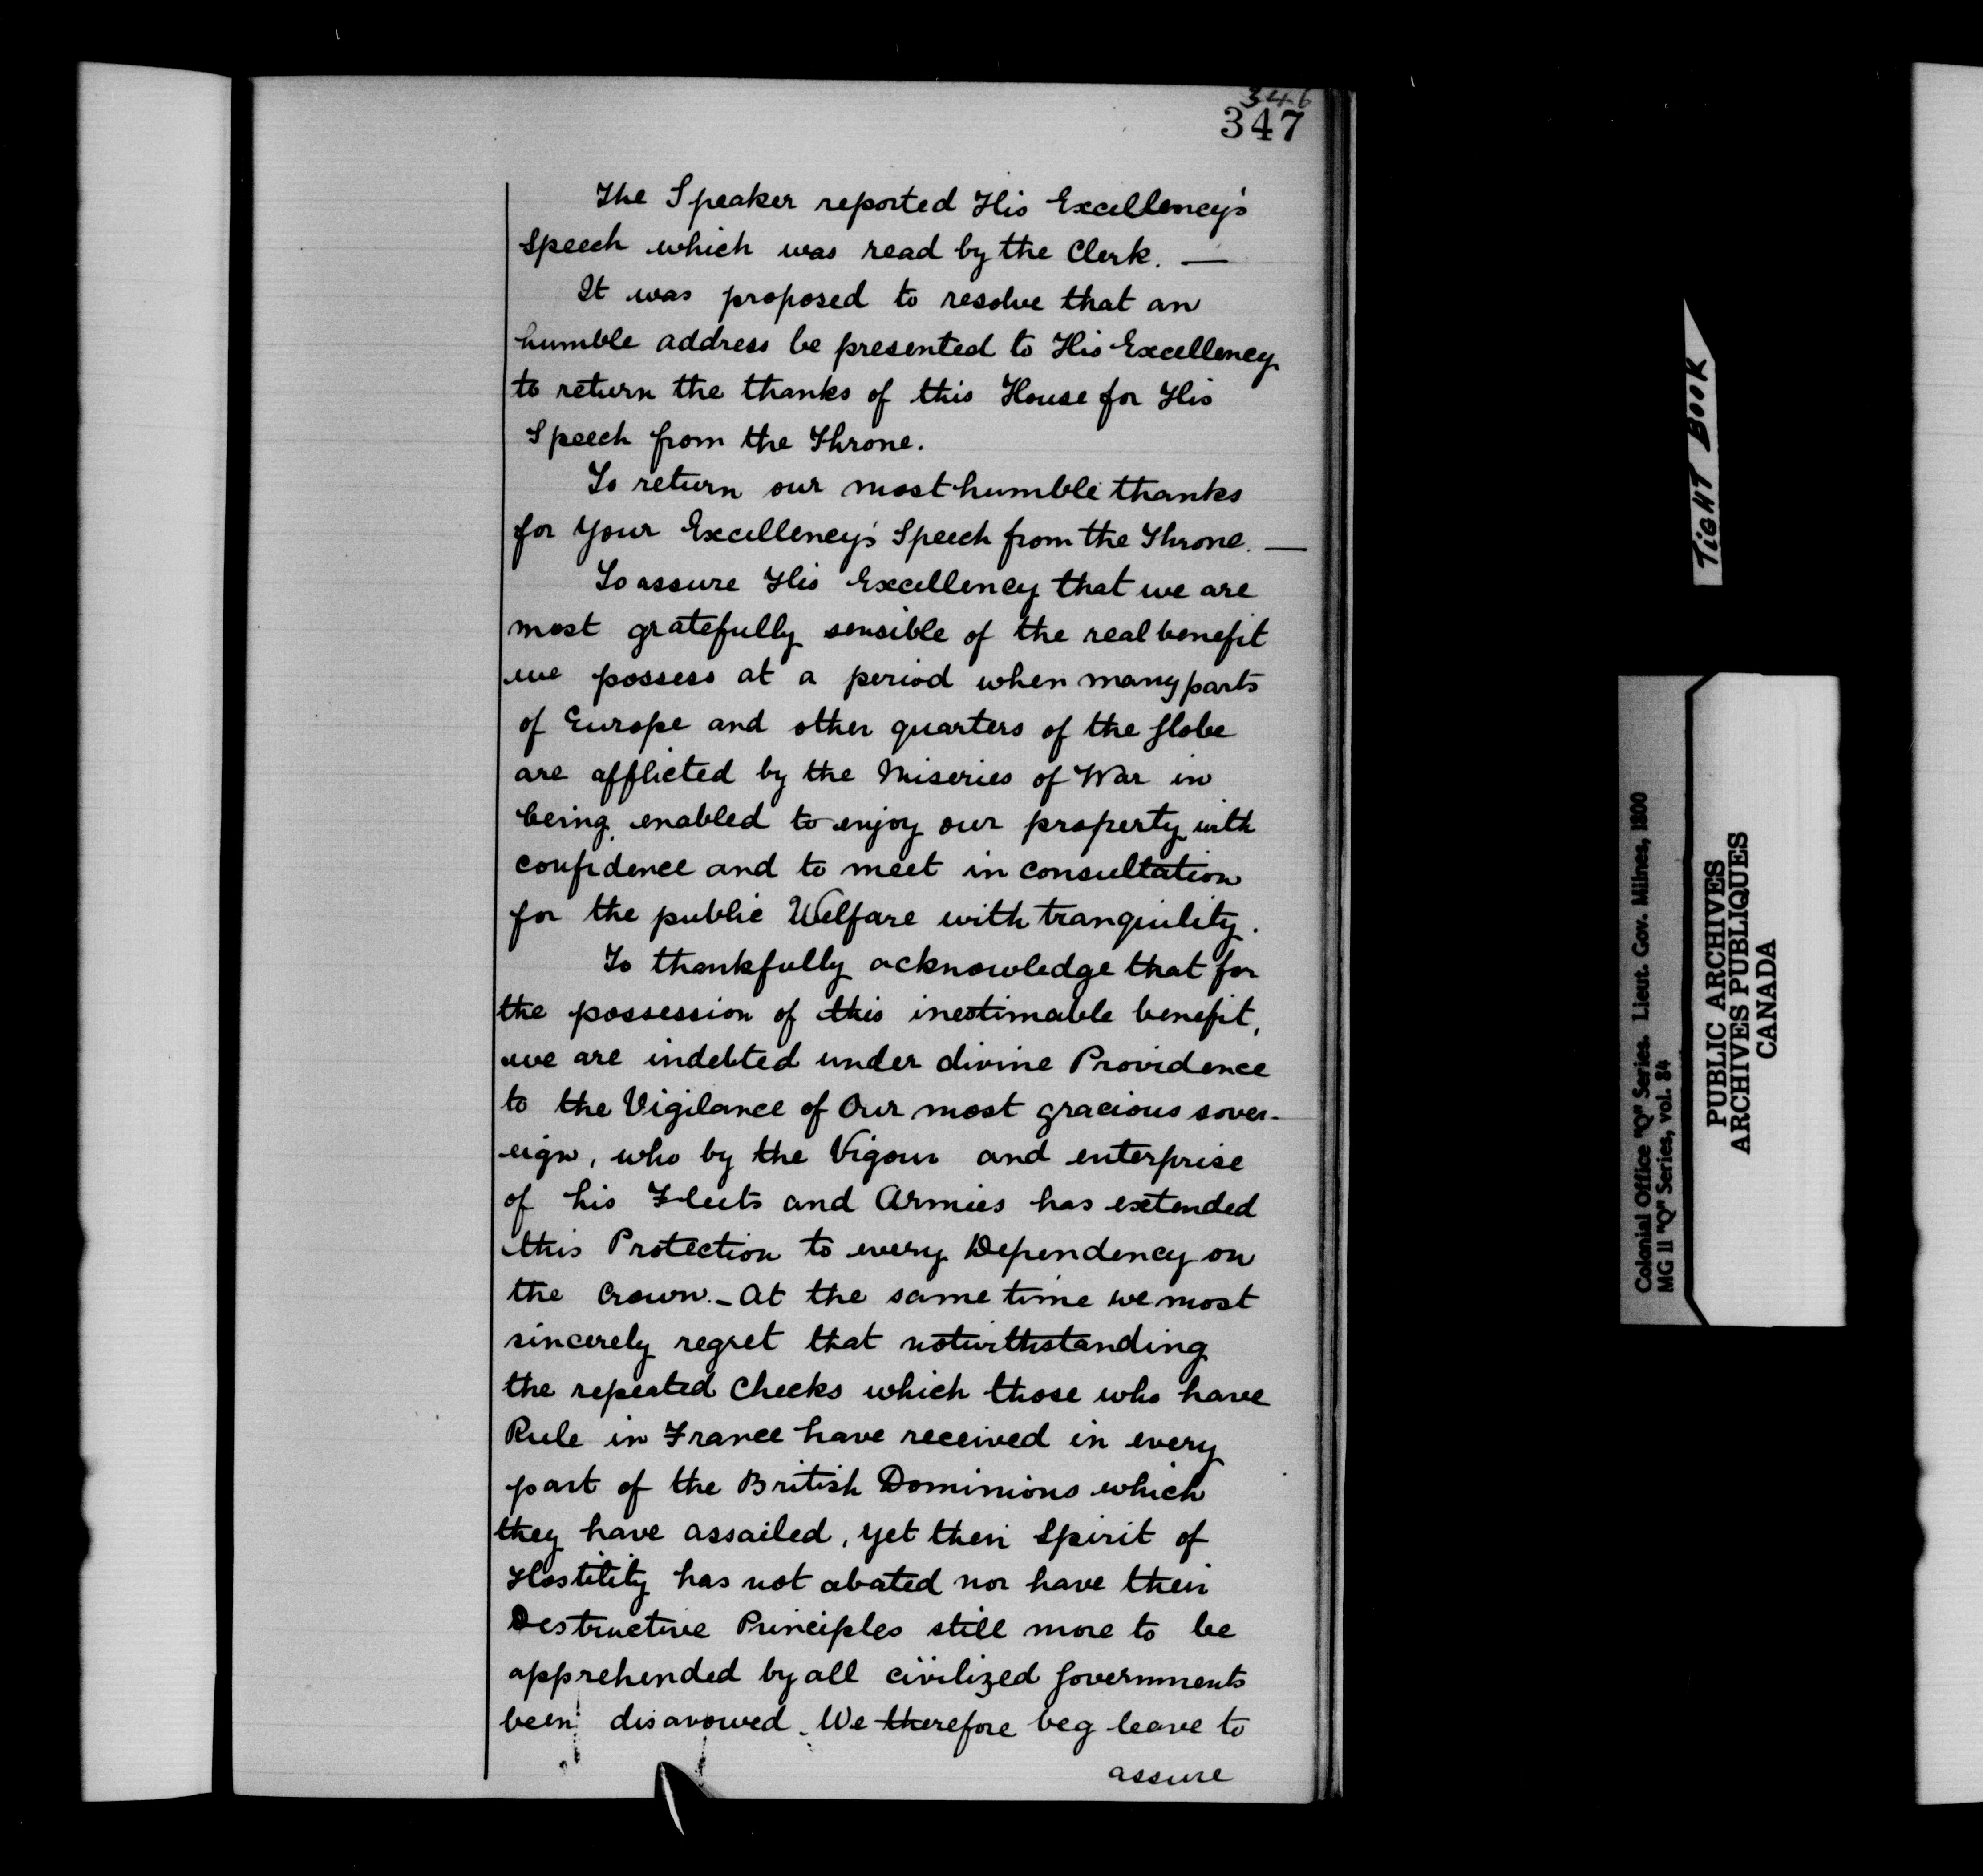 346
347
The Speaker reported His Excellency's
Speech which was read by the Clerk. —
It was proposed to resolve that an
humble address be presented to His Excellency
to return the thanks of this House for His
Speech from the Throne.
To return our most humble thanks
for Your Excellency's Speech from the Throne. —
To assure His Excellency that we are
most gratefully sensible of the real benefit
we possess at a period when many parts
of Europe and other quarters of the globe
are afflicted by the Miseries of War in
being enabled to enjoy our property with
confidence and to meet in consultation
for the public Welfare with tranquility.
To thankfully acknowledge that for
the possession of this inestimable benefit,
we are indebted under divine Providence
to the Vigilance of Our most gracious sover-
eign, who by the Vigour and enterprise
of his Fleets and Armies has extended
this Protection to every Dependency on
the Crown. - At the same time we most
sincerely regret that notwithstanding
the repeated Checks which those who have
Rule in France have received in every
part of the British Dominions which
they have assailed, yet their Spirit of
Hostility has not abated nor have their
Destructive Principles still more to be
apprehended by all civilized Governments
been disavowed. We therefore beg leave to
assure
TIGHT BOOK
Colonial Office "Q" Series. Lieut. Gov. Milnes, 1800
MG 11 "Q" Series, vol. 84
PUBLIC ARCHIVES
ARCHIVES PUBLIQUES
CANADA